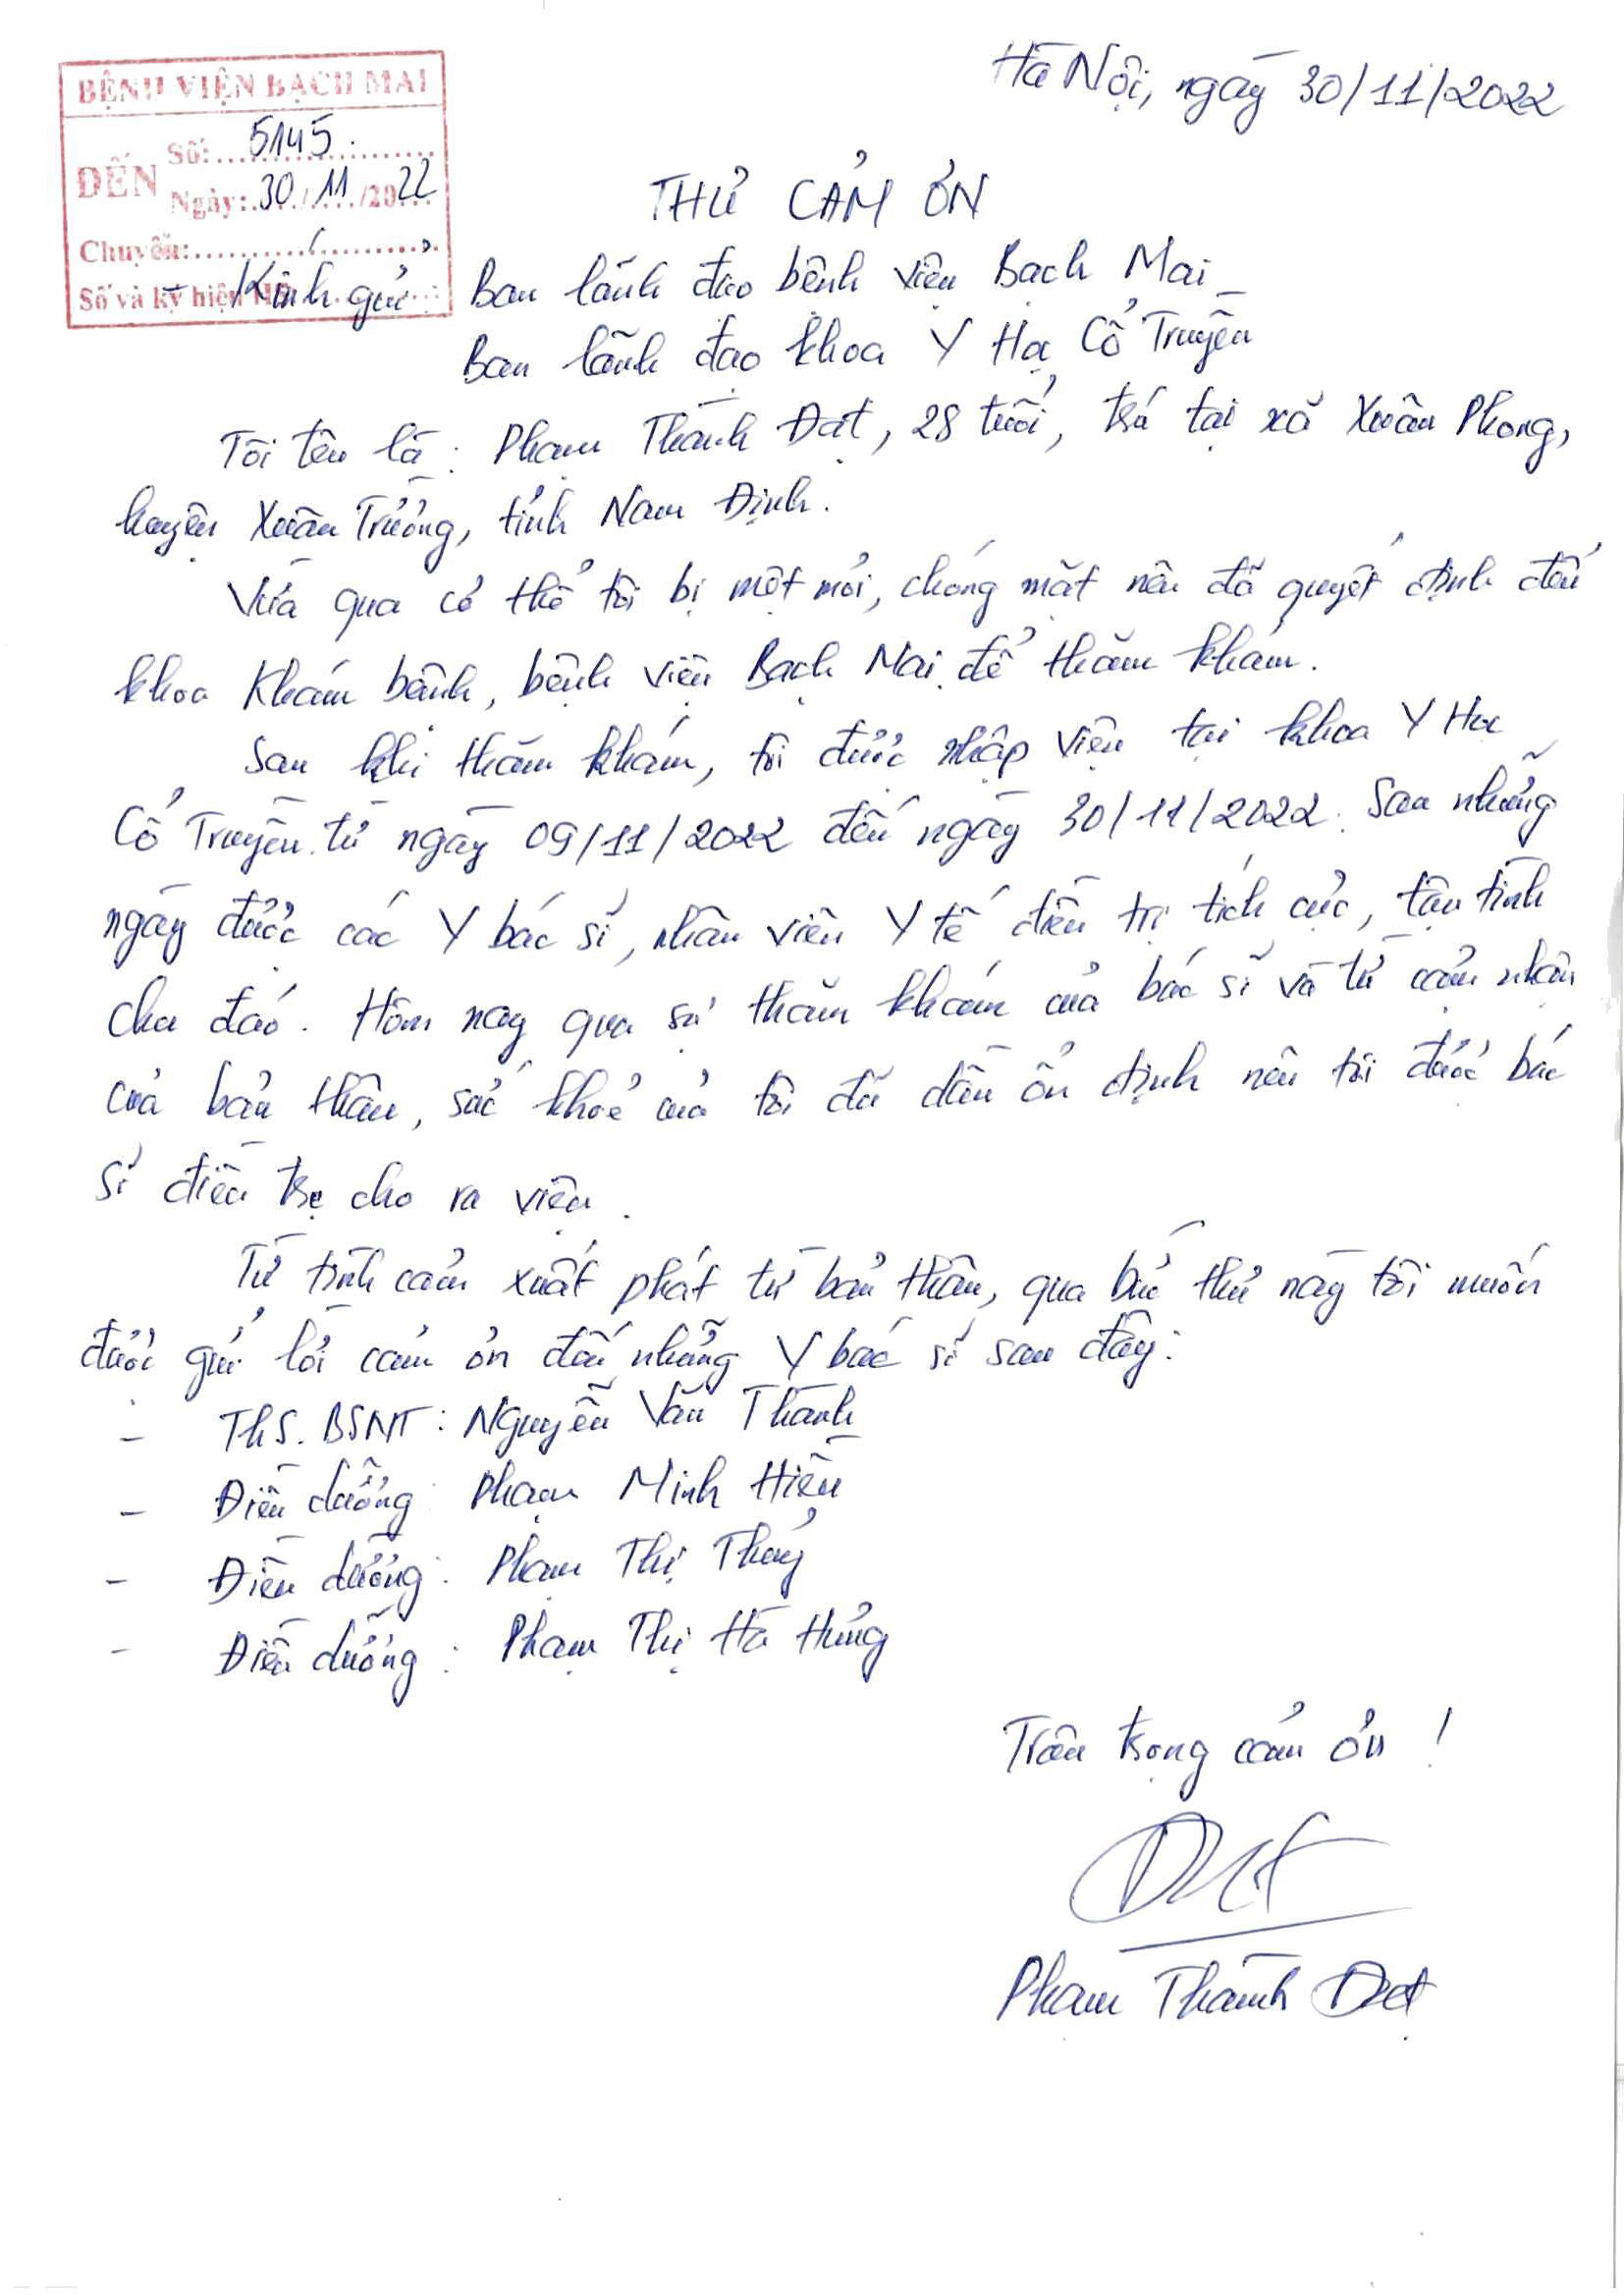 Hà Nội, ngày 30/11/2022
BỆNH VIỆN BẠCH MAI
ĐẾN
Số: 5145
Ngày: 30/11/2022
Chuyển:
Số và ký hiệu HS:
THƯ CẢM ƠN
- Kính gửi: Ban lãnh đạo bệnh viện Bạch Mai
Ban lãnh đạo khoa Y Học Cổ Truyền
Tôi tên là: Phạm Thành Đạt, 28 tuổi, trú tại xã Xuân Phong,
huyện Xuân Trường, tỉnh Nam Định.
Vừa qua cơ thể tôi bị mệt mỏi, chóng mặt nên đã quyết định đến
khoa Khám bệnh, bệnh viện Bạch Mai để thăm khám.
Sau khi thăm khám, tôi được nhập viện tại khoa Y Học
Cổ Truyền từ ngày 09/11/2022 đến ngày 30/11/2022. Sau những
ngày được các Y bác sĩ, nhân viên Y tế điều trị tích cực, tận tình
chu đáo. Hôm nay qua sự thăm khám của bác sĩ và tự cảm nhận
của bản thân, sức khoẻ của tôi đã dần ổn định nên tôi được bác
sĩ điều trị cho ra viện.
Từ tình cảm xuất phát từ bản thân, qua bức thư này tôi muốn
được gửi lời cảm ơn đến những Y bác sĩ sau đây:
- ThS. BSNT: Nguyễn Văn Thành
- Điều dưỡng: Phạm Minh Hiền
- Điều dưỡng: Phạm Thị Thủy
- Điều dưỡng: Phạm Thị Hà Hưng
Trân trọng cảm ơn!
Đạt
Phạm Thành Đạt